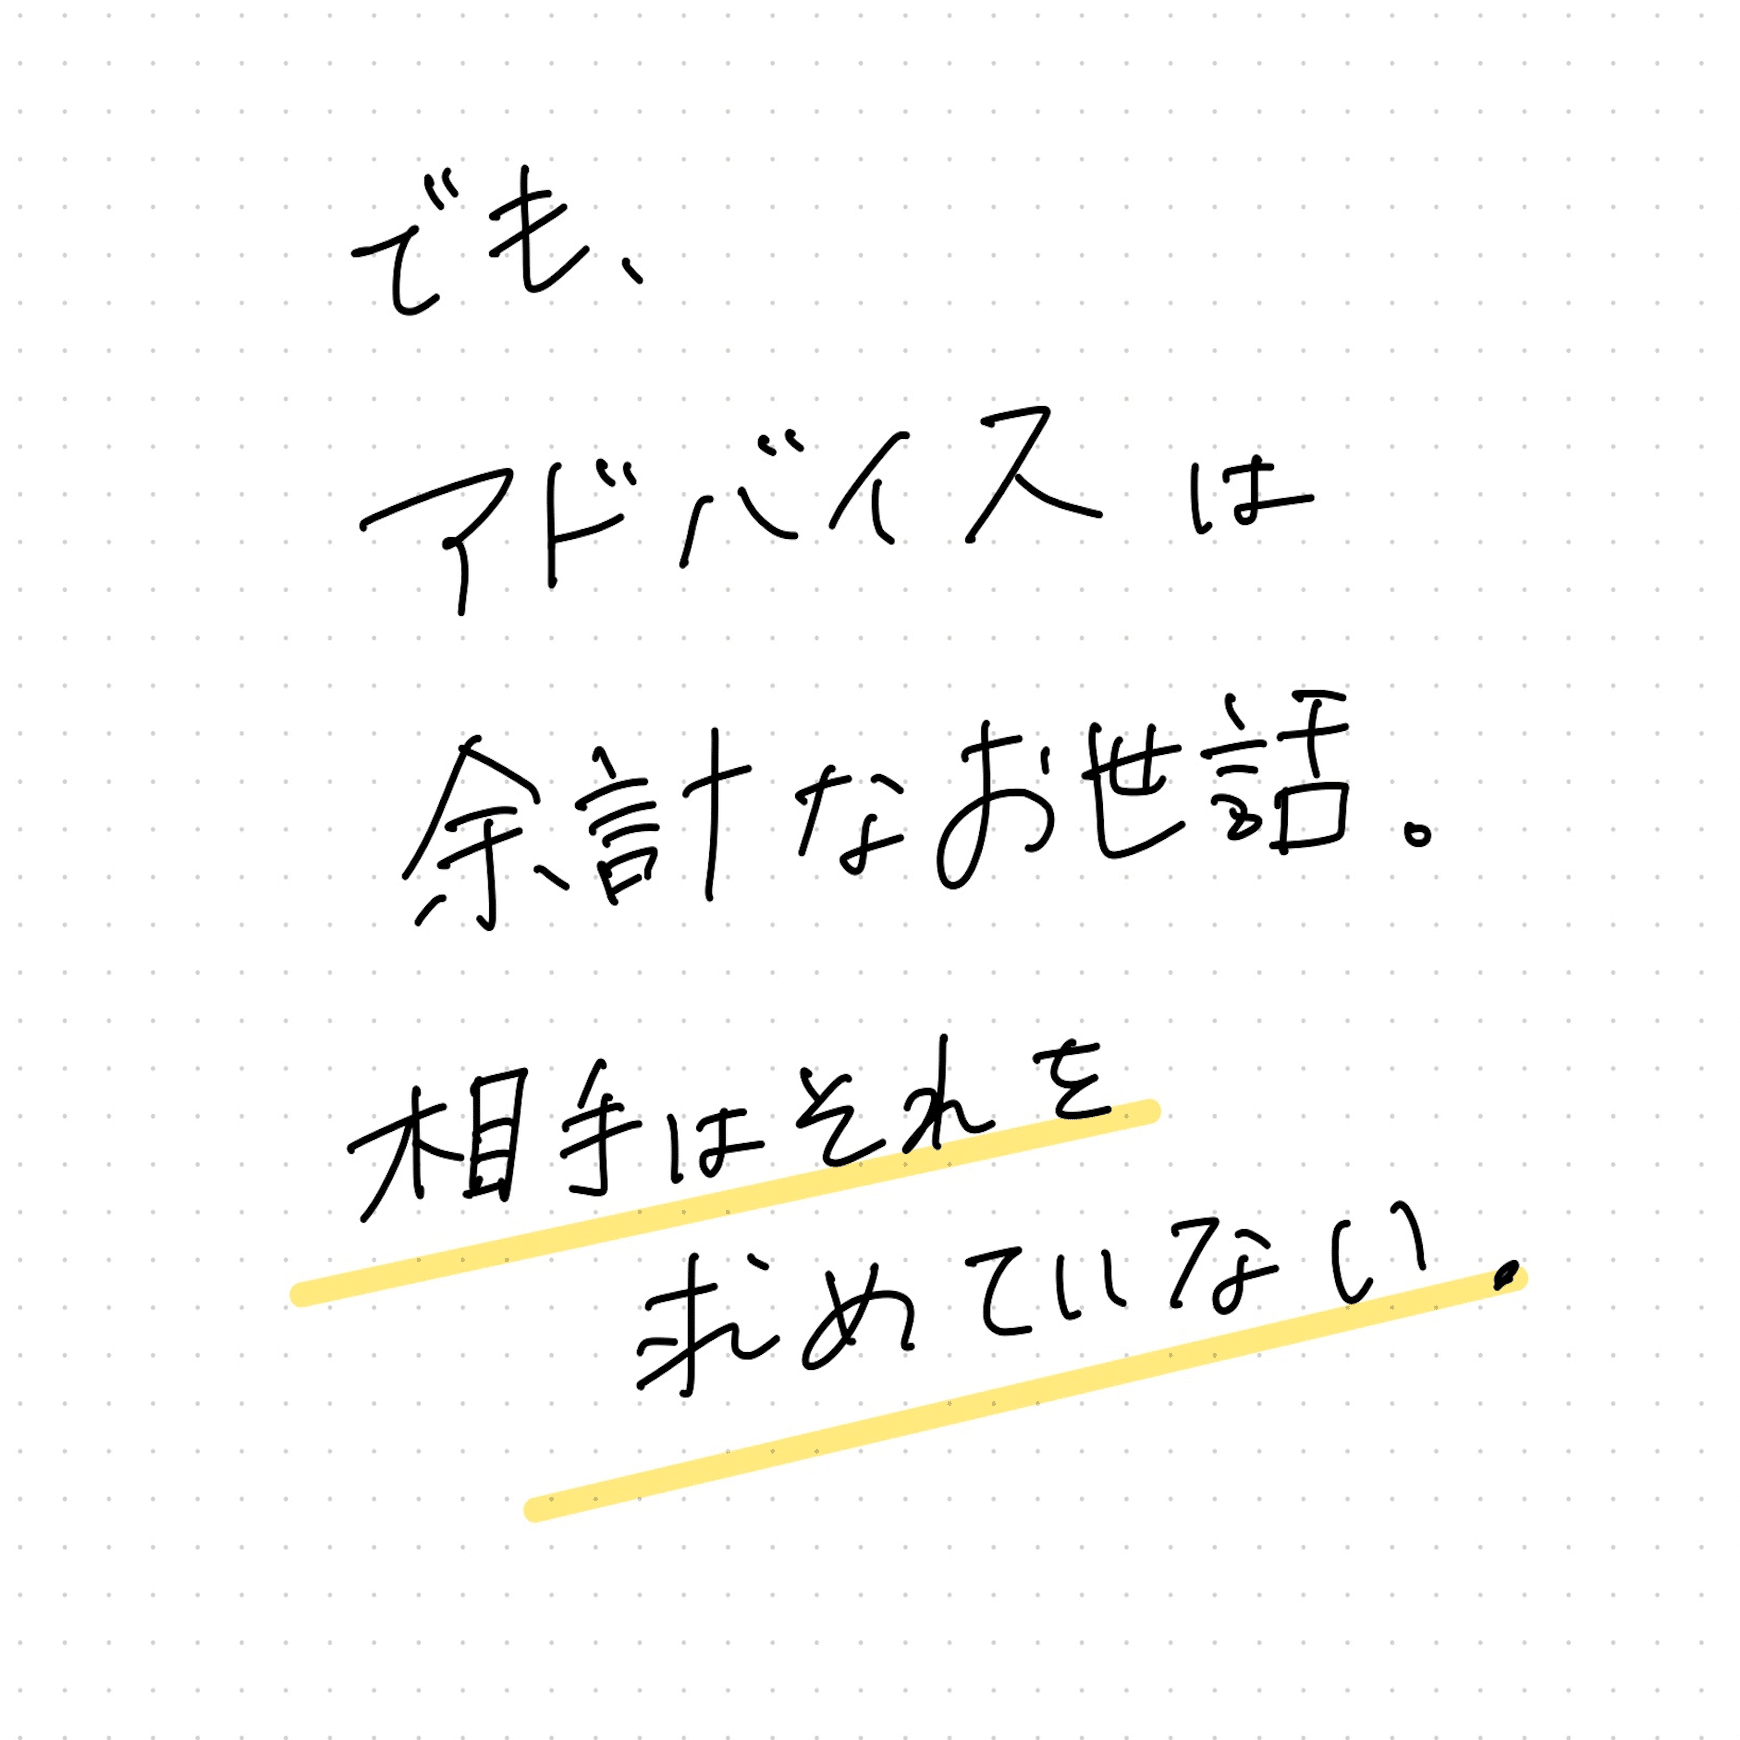 でも、
アドバイスは
余計なお世話。
相手はそれを
求めていない.